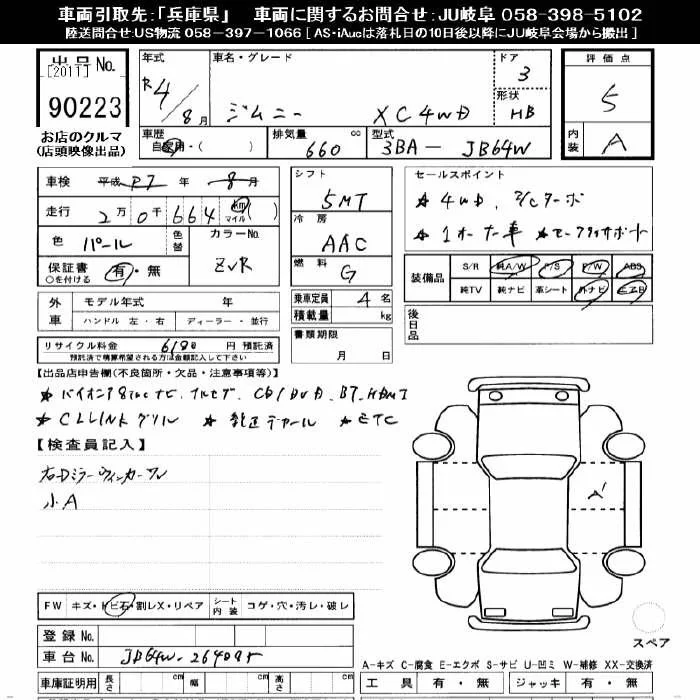 車両引取先：「兵庫県」 車両に関するお問合せ：JU岐阜 058-398-5102
陸送問合せ：US物流 058-397-1066 [ AS・iAucは落札日の10日後以降にJU岐阜会場から搬出 ]
出品No.
[2011]
90223
お店のクルマ
(店頭映像出品)
年式
R4/8月
車名・グレード
ジムニー XC4WD
ドア
3
形状
HB
評価点
5
内装
A
車歴
自家用・( )
排気量
660
cc
型式
3BA - JB64W
車検 平成 R7 年 8月
走行 2万0千664 km マイル ( )
色 パール
色替
カラーNo.
ZVR
保証書
○を付ける
有・無
シフト
5MT
冷房
AAC
燃料
G
乗車定員 4名
積載量 kg
書類期限
月 日
セールスポイント
★ 4WD、I/Cターボ
★ 1オーナー車 ★セーフティサポート
装備品
S/R 純A/W P/S P/W ABS
純TV 純ナビ 革シート 外ナビ エアB
後日品
外車
モデル年式 年
ハンドル 左・右 ディーラー・並行
リサイクル料金 円 預託済
預託済で精算希望される方は金額記入して下さい
【出品店申告欄(不良箇所・欠品・注意事項等)】
★ ナビ、フルセグ、CD/DVD、BT、HDMI
★ CLLINKグリル ★ 純正デカール ★ ETC
【検査員記入】
右Dミラーウィンカーワレ
小A
A'
FW キズ・トビ石・割レX・リペア
シート内装 コゲ・穴・汚レ・破レ
登録No.
車台No. JB64W-
スペア
A-キズ C-腐食 E-エクボ S-サビ U-凹ミ W-補修 XX-交換済
車庫証明用 長さ cm 幅 cm 高さ cm
工具 有・無 ジャッキ 有・無